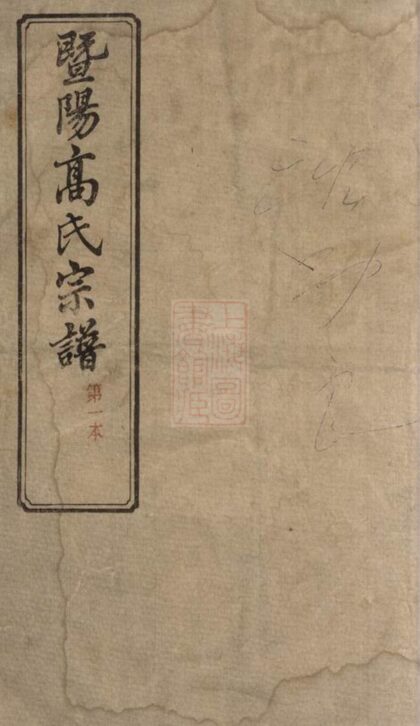 暨陽髙氏宗譜
第一本
上海圖
書館藏